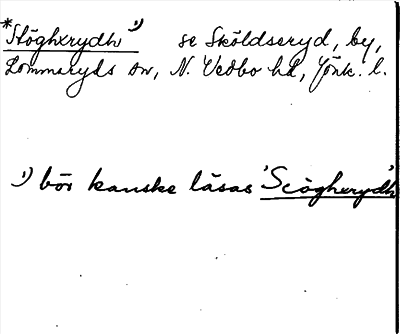 *Stöghxrydh 1) se Sköldseryd, by,
Lommaryds sn, N. Vedbo hd, Jönk. l.
1) bör kanske läsas 'Scögherydh'